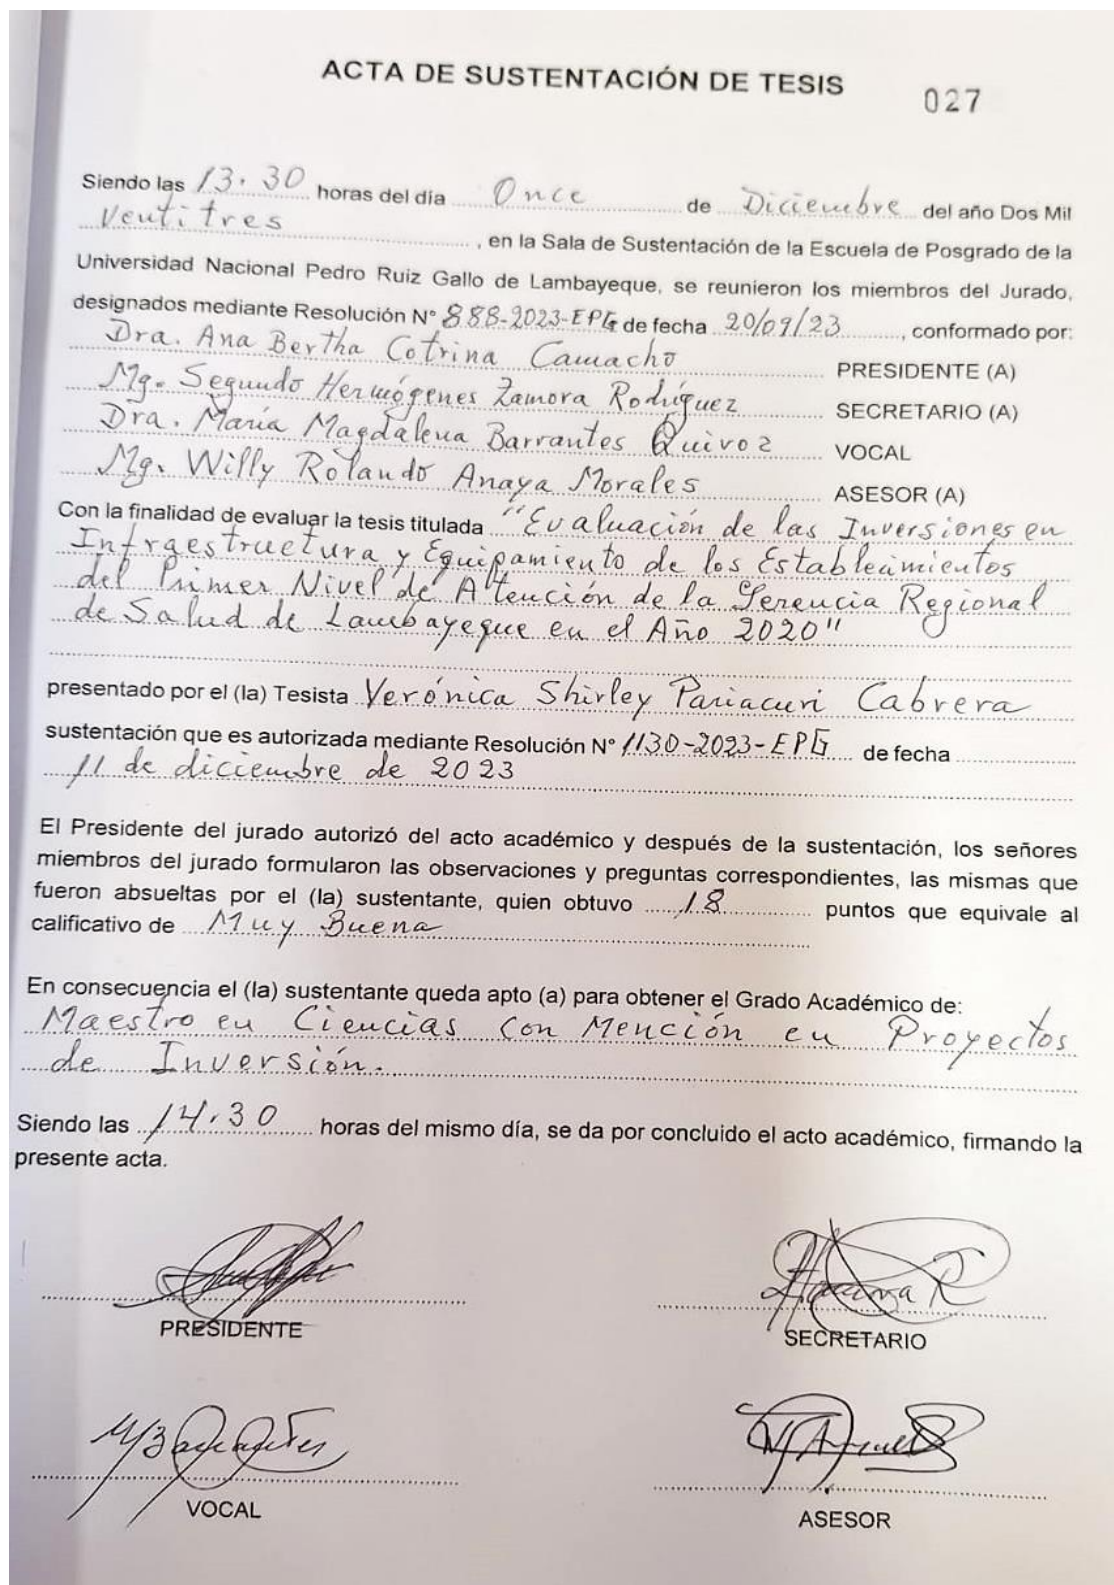 ACTA DE SUSTENTACIÓN DE TESIS
027
Siendo las 13.30 horas del día Once de Diciembre del año Dos Mil
Ventitres, en la Sala de Sustentación de la Escuela de Posgrado de la
Universidad Nacional Pedro Ruiz Gallo de Lambayeque, se reunieron los miembros del Jurado,
designados mediante Resolución N° 888-2023-EPG de fecha 20/09/23, conformado por:
Dra. Ana Bertha Cotrina Camacho PRESIDENTE (A)
Mg. Segundo Hermógenes Zamora Rodríguez SECRETARIO (A)
Dra. María Magdalena Barrantes Quiroz VOCAL
Mg. Willy Rolando Anaya Morales ASESOR (A)
Con la finalidad de evaluar la tesis titulada "Evaluación de las Inversiones en
Infraestructura y Equipamiento de los Establecimientos
del Primer Nivel de Atención de la Gerencia Regional
de Salud de Lambayeque en el Año 2020"
presentado por el (la) Tesista Verónica Shirley Pariacuri Cabrera
sustentación que es autorizada mediante Resolución N° 1130-2023-EPG de fecha
11 de diciembre de 2023
El Presidente del jurado autorizó del acto académico y después de la sustentación, los señores
miembros del jurado formularon las observaciones y preguntas correspondientes, las mismas que
fueron absueltas por el (la) sustentante, quien obtuvo 18 puntos que equivale al
calificativo de Muy Buena
En consecuencia el (la) sustentante queda apto (a) para obtener el Grado Académico de:
Maestro en Ciencias con Mención en Proyectos
de Inversión.
Siendo las 14.30 horas del mismo día, se da por concluido el acto académico, firmando la
presente acta.
PRESIDENTE
SECRETARIO
VOCAL
ASESOR